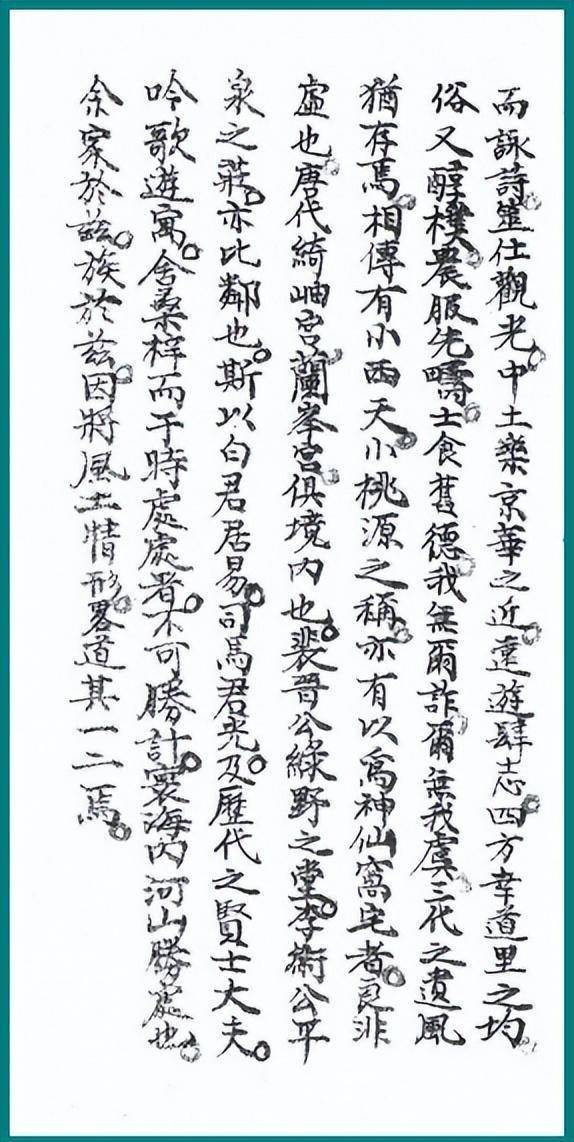 而詠詩。筮仕觀光。中土樂京華之近。遠遊肆志。四方幸道里之均。
俗又醇樸。農服先疇。士食舊德。我無爾詐。爾無我虞。三代之遺風
猶存焉。相傳有小西天。小桃源之稱。亦有以爲神仙窩宅者。良非
虛也。唐代綺岫宮。蘭峯宮。俱境內也。裴晉公綠野之堂。李衛公平
泉之莊。亦比鄰也。斯以白君居易。司馬君光。及歷代之賢士大夫。
吟歌遊寓。舍桑梓而于時處處者。不可勝計。寰海內河山勝處也。
余家於茲。族於茲。因將風土情形。畧道其一二焉。